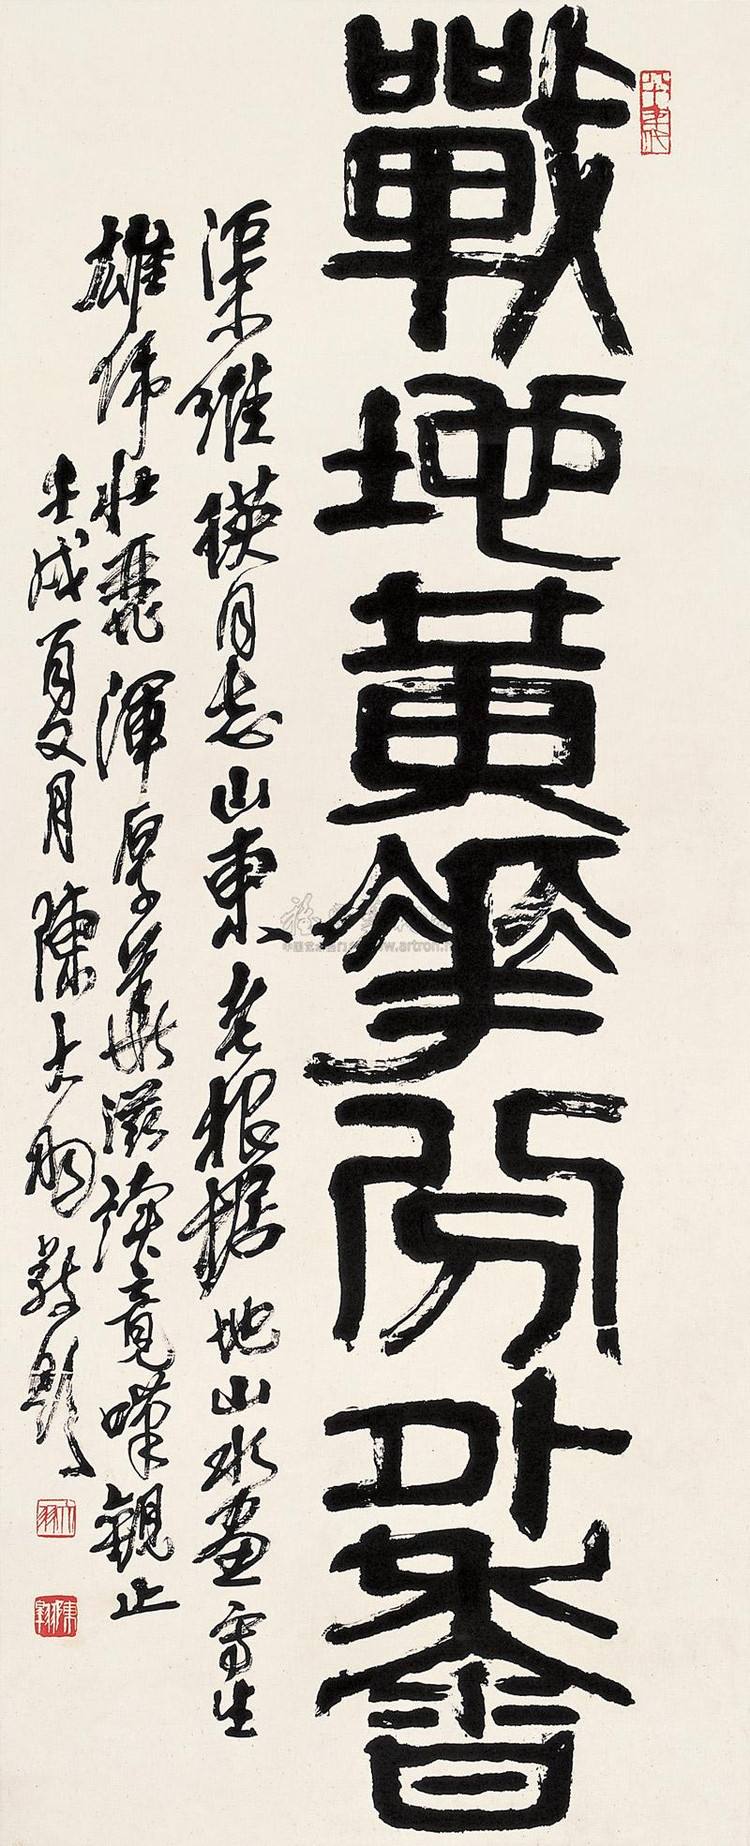 戰地黃華分外香
渠維楧同志山東老根據地山水畫寫生
雄偉壯麗渾厚華滋讀竟嘆觀止
壬戌夏月陳大羽敬題
大羽
陳翱